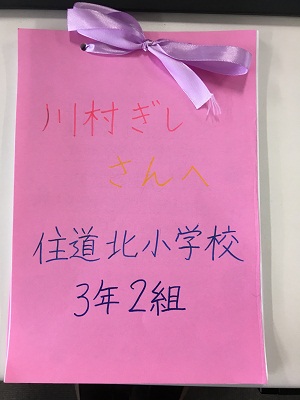 川村ぎし
さんへ
住道北小学校
3年2組